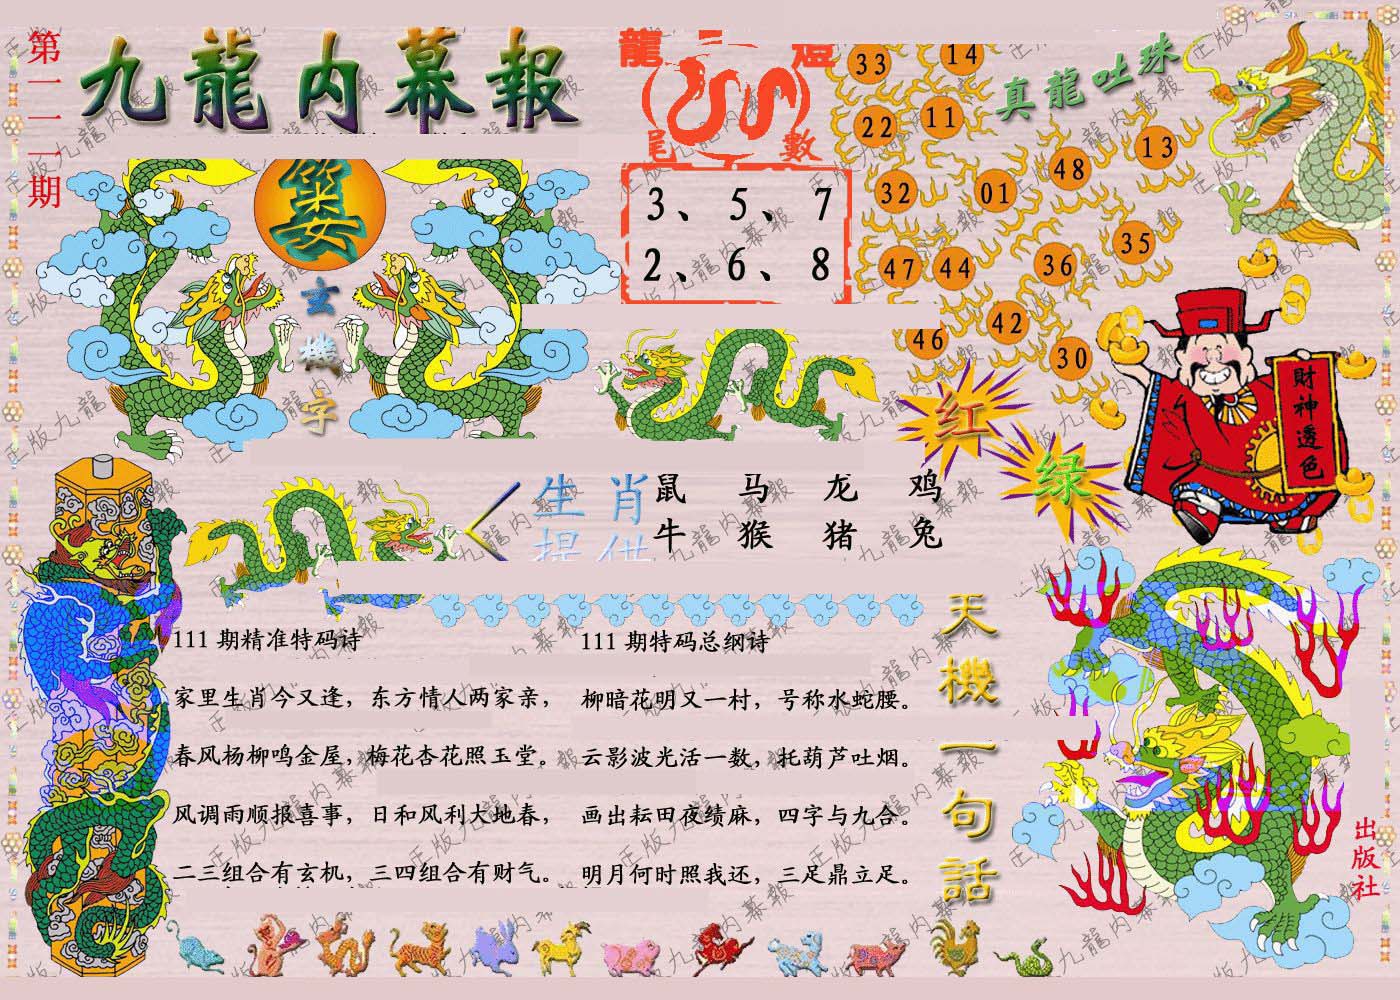 第一一一期
九龍内幕報
龍燈
尾數
3、5、7
2、6、8
33
14
22
11
13
48
32
01
35
47
44
36
42
46
30
真龍吐珠
玄機字
財神透色
红
绿
生肖
提供
鼠 马 龙 鸡
牛 猴 猪 兔
111 期精准特码诗
家里生肖今又逢，东方情人两家亲，
春风杨柳鸣金屋，梅花杏花照玉堂。
风调雨顺报喜事，日和风利大地春，
二三组合有玄机，三四组合有财气。
111 期特码总纲诗
柳暗花明又一村，号称水蛇腰。
云影波光活一数，托葫芦吐烟。
画出耘田夜绩麻，四字与九合。
明月何时照我还，三足鼎立足。
天機一句話
出版社
正版九龍内幕報